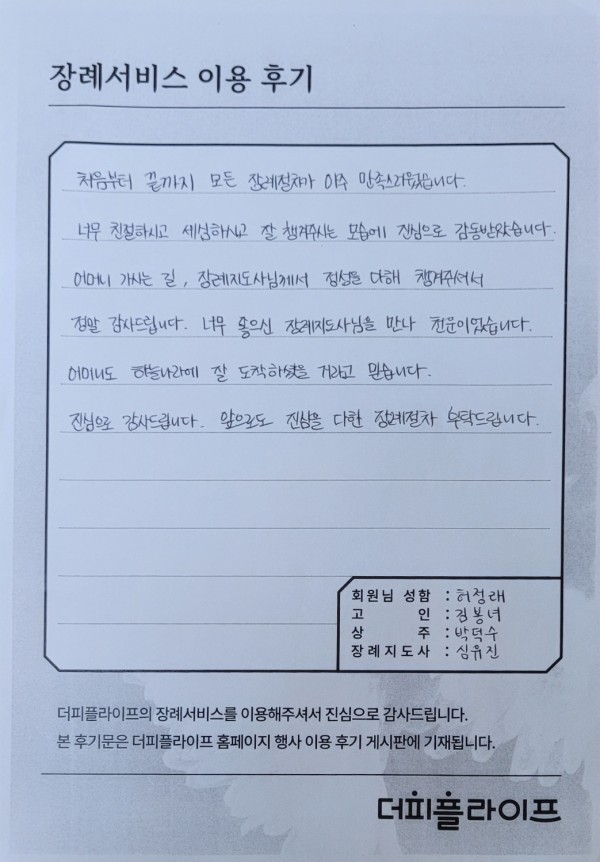 장례서비스 이용 후기
처음부터 끝까지 모든 장례절차가 아주 만족스러웠습니다.
너무 친절하시고 세심하시고 잘 챙겨주시는 모습에 진심으로 감동받았습니다.
어머니 가시는 길, 장례지도사님께서 정성을 다해 챙겨주셔서
정말 감사드립니다. 너무 좋으신 장례지도사님을 만나 천운이였습니다.
어머니도 하늘나라에 잘 도착하셨을 거라고 믿습니다.
진심으로 감사드립니다. 앞으로도 진심을 다한 장례절차 부탁드립니다.
회원님 성함 : 허정래
고 인 : 김봉녀
상 주 : 박덕수
장례지도사 : 심유진
더피플라이프의 장례서비스를 이용해주셔서 진심으로 감사드립니다.
본 후기문은 더피플라이프 홈페이지 행사 이용 후기 게시판에 기재됩니다.
더피플라이프